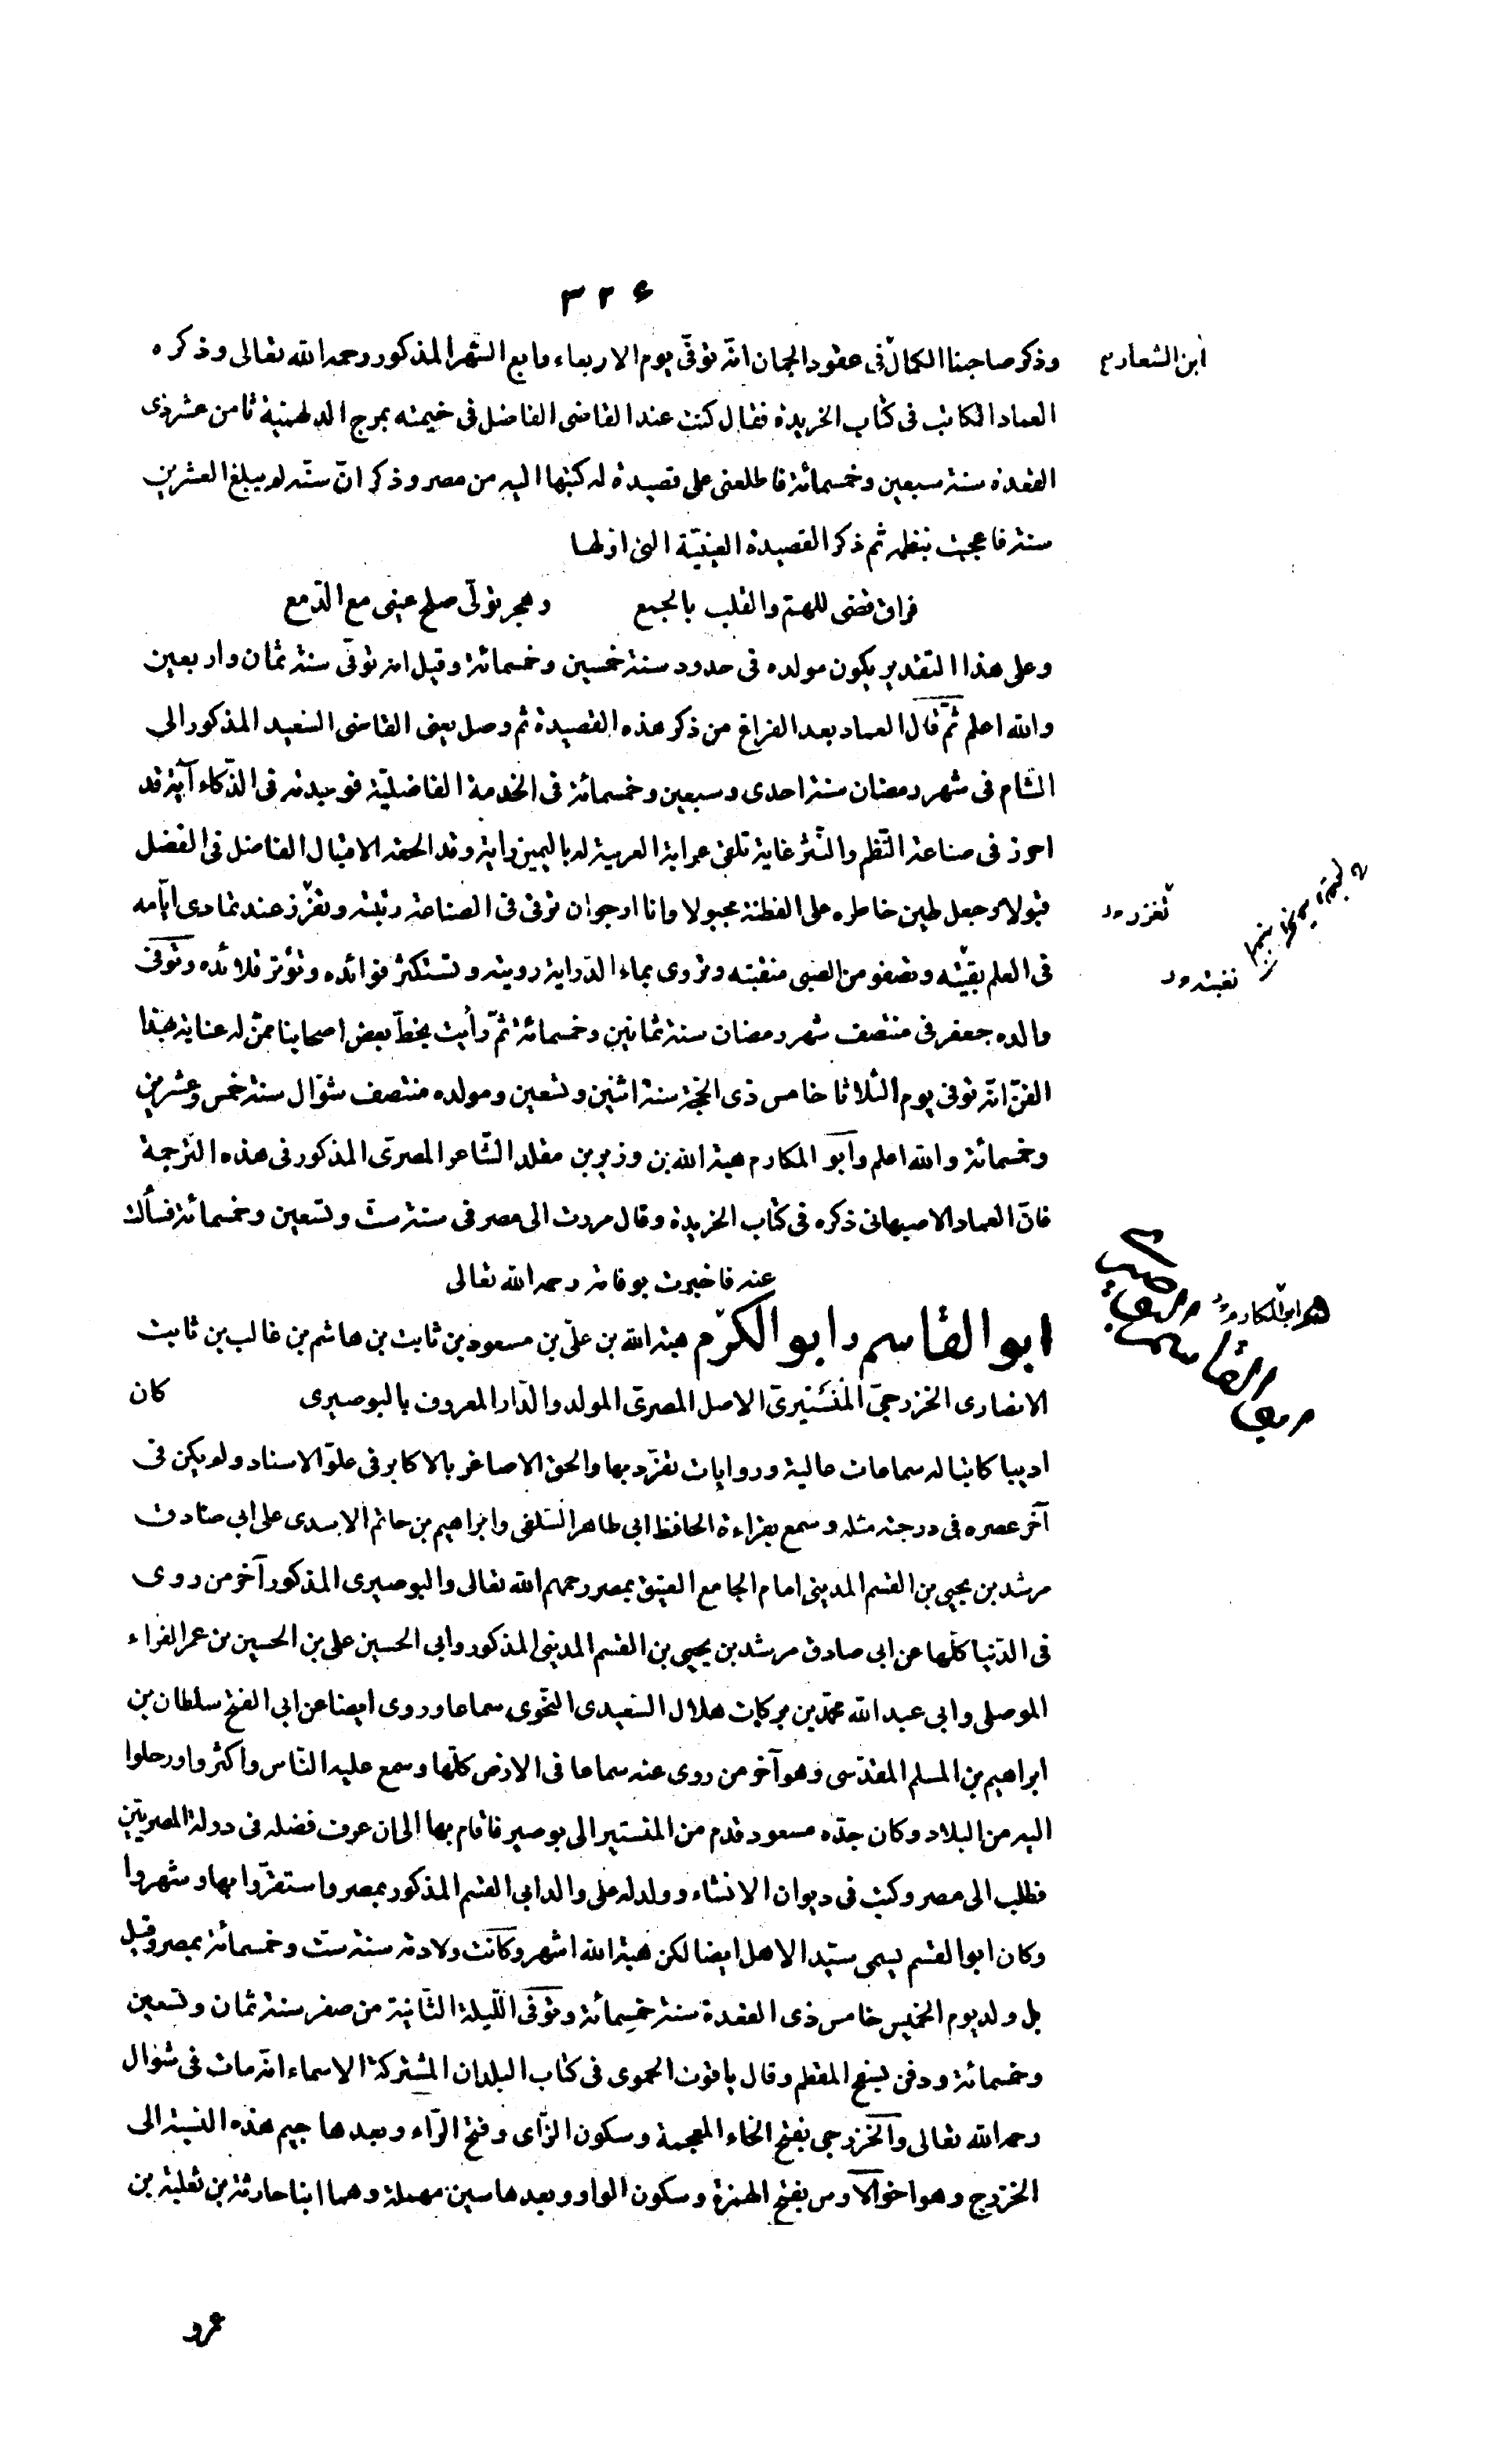 ٣٢٤
وذكر صاحبنا الكمال فى عقود الجمان انّه توفّى يوم الاربعاء رابع الشهر المذكور رحمه الله تعالى وذكره
ابن الشعار م
العماد الكاتب فى كتاب الخريدة فقال كنت عند القاضى الفاضل فى خيمته بمرج الدلهمية ثامن عشر ذى
القعدة سنة سبعين وخمسمائة فاطلعنى على قصيدة له كتبها اليه من مصر وذكر انّ سنّه لم يبلغ العشرين
سنة فاعجبت بنظمه ثم ذكر القصيدة العينيّة التى اولها
فراق قضى للهم والقلب بالجمع وهجر تولّى صلح عينى مع الدّمع
وعلى هذا التقدير يكون مولده فى حدود سنة خمسين وخمسمائة وقيل انه توفّى سنة ثمان واربعين
والله اعلم ثمّ قال العماد بعد الفراغ من ذكر هذه القصيدة ثم وصل يعنى القاضى السّعيد المذكور الى
الشام فى شهر رمضان سنة احدى وسبعين وخمسمائة فى الخدمة الفاضليّة فوجدته فى الذّكاء آية قد
احرز فى صناعة النّظم والنّثر غاية تلقى عرابة العربية له باليمين راية وقد الحفه الاقبال الفاضل فى الفضل
قبولا وجعل طين خاطره على الفطنة مجبولا وانا ارجو ان ترقى فى الصناعة رتبته وتغزّر عند تمادى ايّامه
تغزر ود
فى العلم بقيّته وتصفو من الصبى منقبته وتروى بماء الدّراية رويته وتستكثر فوائده وتؤثر قلائده وتوفى
نغبته ود
والده جعفر فى منتصف شهر رمضان سنة ثمانين وخمسمائة ثمّ رأيت بخطّ بعض اصحابنا ممّن له عناية بهذا
الفنّ انّه توفى يوم الثلاثا خامس ذى الحجّة سنة اثنين وتسعين ومولده منتصف شوّال سنة خمس وعشرين
وخمسمائة والله اعلم وابو المكارم هبة الله بن وزير بن مقلد الشّاعر المصرىّ المذكور فى هذه التّرجمة
فانّ العماد الاصبهانى ذكره فى كتاب الخريدة وقال مررت الى مصر فى سنة ستّ وتسعين وخمسمائة فسألت
عنه فاخبرت بوفاته رحمه الله تعالى
ابو القاسم وابو الكرّم هبة الله بن علىّ بن مسعود بن ثابت بن هاشم بن غالب بن ثابت
هو ابو المكارم ود
الانصارى الخزرجىّ المُنَسْتيرىّ الاصل المصرىّ المولد والدّار المعروف بالبوصيرى كان
اديبا كاتبا له سماعات عالية وروايات تفرّد بها والحق الاصاغر بالاكابر فى علوّ الاسناد ولم يكن فى
آخر عصره فى درجته مثله وسمع بقراءة الحافظ ابى طاهر السّلفى وابراهيم بن حاتم الاسدى على ابى صادق
مرشد بن يحيى بن القسم المدينى امام الجامع العتيق بمصر رحمهم الله تعالى والبوصيرى المذكور آخر من روى
فى الدّنيا كلّها عن ابى صادق مرشد بن يحيى بن القسم المدينى المذكور وابى الحسين على بن الحسين بن عمر الفراء
الموصلى وابى عبد الله محمّد بن بركات هلال السّعيدى النّحوى سماعا وروى ايضا عن ابى الفتح سلطان بن
ابراهيم بن المسلم المقدّسى وهو آخر من روى عنه سماعا فى الارض كلّها وسمع عليه النّاس واكثروا ورحلوا
اليه من البلاد وكان جدّه مسعود قدم من المنستير الى بوصير فاقام بها الى ان عرف فضله فى دولة المصريّين
فطلب الى مصر وكتب فى ديوان الانشاء وولد له على والد ابى القسم المذكور بمصر واستقرّوا بها وشهروا
وكان ابو القسم يسمى سيّد الاهل ايضا لكن هبة الله اشهر وكانت ولادته سنة ستّ وخمسمائة بمصر وقيل
بل ولد يوم الخميس خامس ذى القعدة سنة خمسمائة وتوفى اللّيلة الثّانية من صفر سنة ثمان وتسعين
وخمسمائة ودفن بسفح المقطم وقال ياقوت الحموى فى كتاب البلدان المشتركة الاسماء انّه مات فى شوال
رحمه الله تعالى والخزرجى بفتح الخاء المعجمة وسكون الزّاى وفتح الرّاء وبعدها جيم هذه النسبة الى
الخزرج وهو اخو الاوس بفتح الهمزة وسكون الواو وبعدها سين مهملة وهما ابنا حارثة بن ثعلبة بن
عمرو